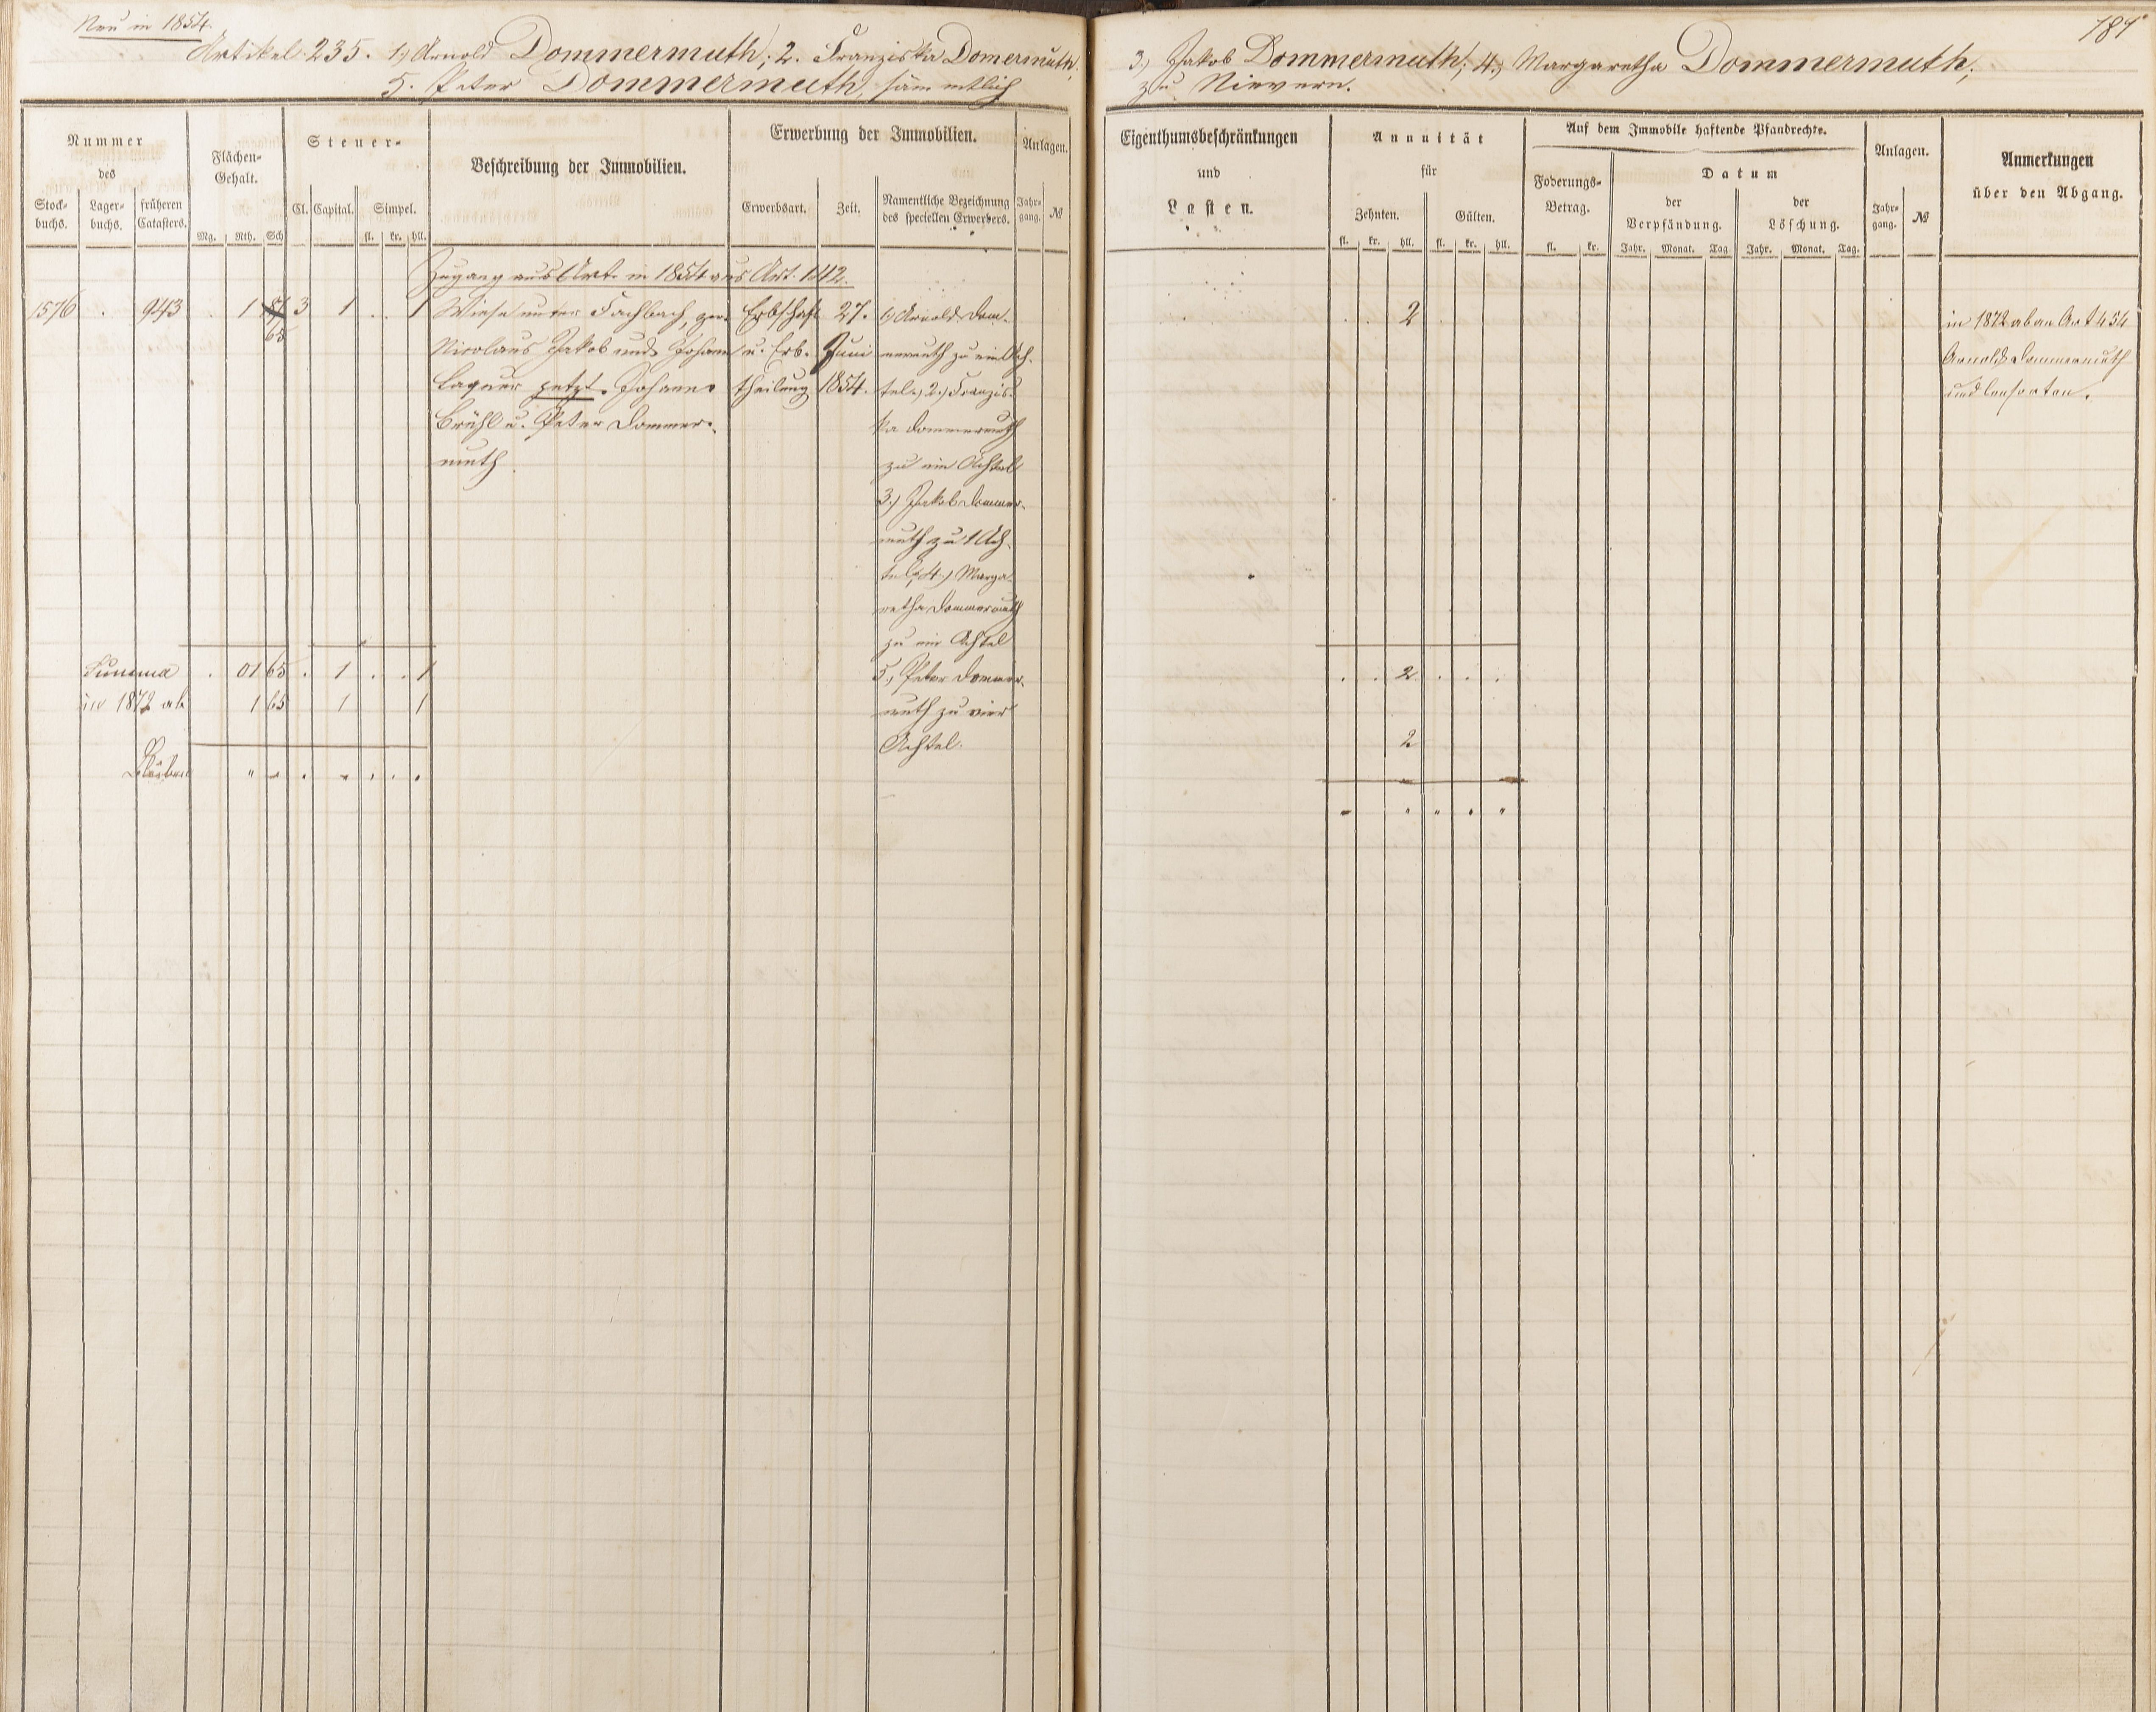 Neu in 1854.
Artikel 235. 1) Arnold Dommermuth; 2. Franziska Domermuth;
5. Peter Dommermuth, sämmtlich
Nummer
des
Stock-
buchs.
Lager-
buchs.
früheren
Catasters.
Flächen-
Gehalt.
Mg. Rth. Sch
Steuer-
Cl. Capital. Simpel.
fl. kr. hll.
Beschreibung der Immobilien.
Erwerbung der Immobilien.
Erwerbsart. Zeit.
Namentliche Bezeichnung
des speciellen Erwerbers.
Anlagen.
Jahr-
gang. №
Zugang aus Art. in 1854 aus Art. 142.
1576 . 943 . 1 3 1 . . 1
65
Wiese unter Fachbach, gew.
Nicolaus Jakob und Johann
jetzt Johann
Brühl u. Peter Dommer-
muth.
Erbschaft
u. Erb-
theilung
27.
Juni
1854.
1) Arnold Dom-
mermuth zu ein Ach-
tel; 2.) Franzis-
ka Dommermuth
zu ein Achtel
3.) Jakob Dommer-
muth zu 1 Ach-
tel; 4.) Marga-
retha Dommermuth
zu ein Achtel
5.) Peter Dommer-
muth zu vier
Achtel.
Summa . 01 65 . 1 . . 1
in 1872 ab 1 65 1 1
Bleiben " " . " . . .
181
3.) Jakob Dommermuth; 4.) Margaretha Dommermuth;
zu Nievern.
Eigenthumsbeschränkungen
und
Lasten.
Annuität
für
Zehnten. Gülten.
fl. kr. hll. fl. kr. hll.
Auf dem Immobile haftende Pfandrechte.
Foderungs-
Betrag.
fl. kr.
Datum
der
Verpfändung.
Jahr. Monat. Tag
der
Löschung.
Jahr. Monat. Tag.
Anlagen.
Jahr-
gang. №
Anmerkungen
über den Abgang.
. . 2
in 1872 ab an Art 454
Arnold Dommermuth
und Consorten.
. . 2 . . .
2
" " " " "